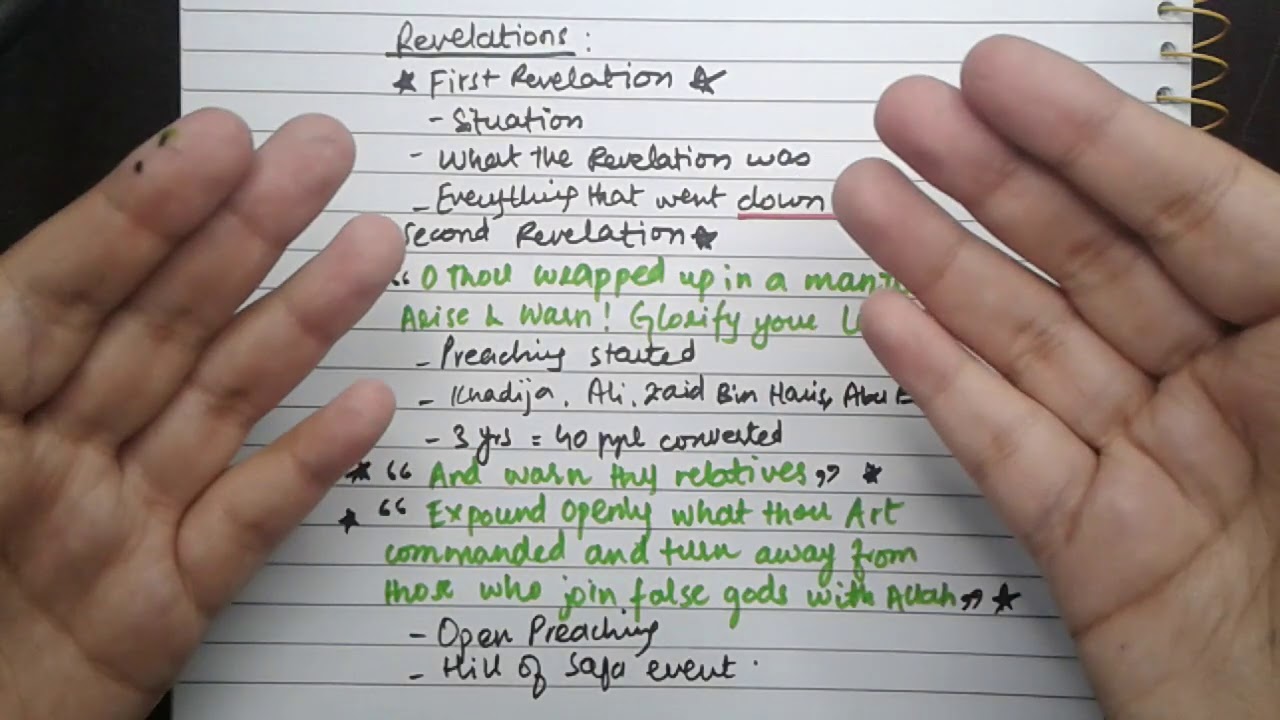 Revelations:
★ First Revelation ★
- Situation
- What the Revelation was
- Everything that went down
Second Revelation ★
“ O Thou wrapped up in a
Arise & Warn! Glorify your
- Preaching started
- Khadija, Ali, Zaid Bin Haris, Abu
- 3 yrs = 40 ppl converted
★ “ And warn thy relatives ” ★
★ “ Expound openly what thou Art
commanded and turn away from
those who join false gods with Allah ” ★
- Open Preaching
- Hill of Safa event.